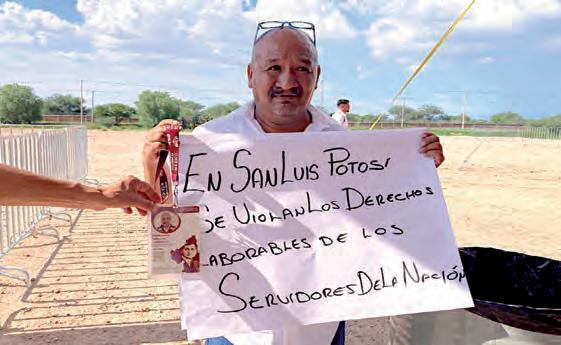 EN SAN LUIS POTOSÍ
SE VIOLAN LOS DERECHOS
LABORABLES DE LOS
SERVIDORES DE LA NACIÓN